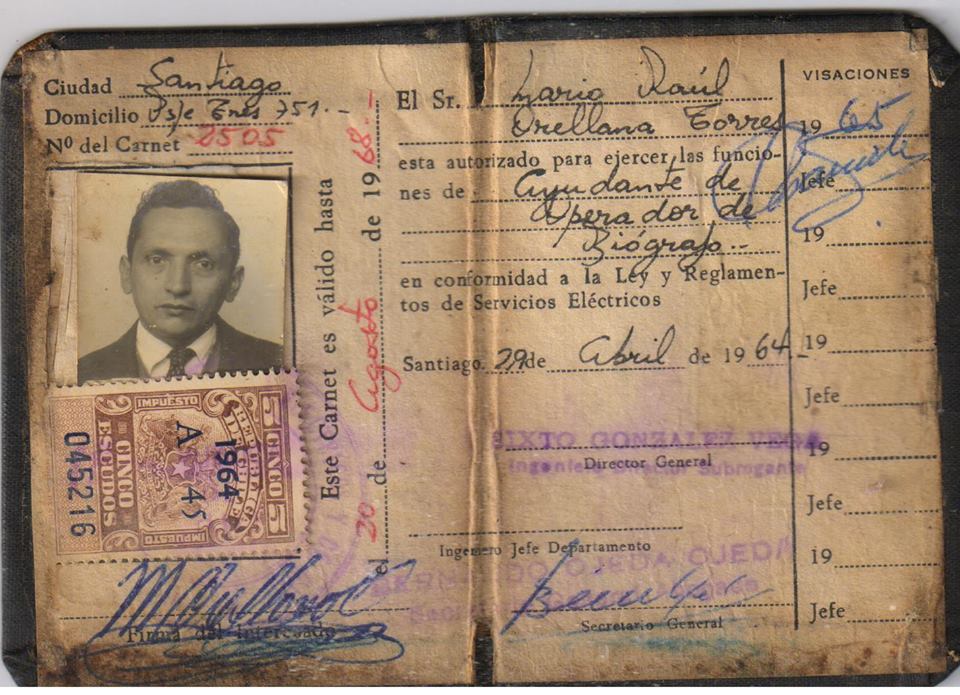 Ciudad Santiago
Domicilio Psje Tres 751.-
Nº del Carnet 2505
Este Carnet es válido hasta
el 20 de Agosto de 1968.-
IMPUESTO
5 CINCO 5
REPUBLICA DE CHILE
1964
A 45
CINCO
ESCUDOS
IMPUESTO
045216
Firma del Interesado
El Sr. Mario Raúl
Orellana Torres
esta autorizado para ejercer las funcio-
nes de Ayudante de
Operador de
Biógrafo.-
en conformidad a la Ley y Reglamen-
tos de Servicios Eléctricos
Santiago. 29 de Abril de 1964.-
SIXTO GONZALEZ VEGA
Director General
Ingeniero Director Subrogante
Ingeniero Jefe Departamento
OJEDA OJEDA
Secretario General
VISACIONES
1965
Jefe
19
Jefe
19
Jefe
19
Jefe
19
Jefe